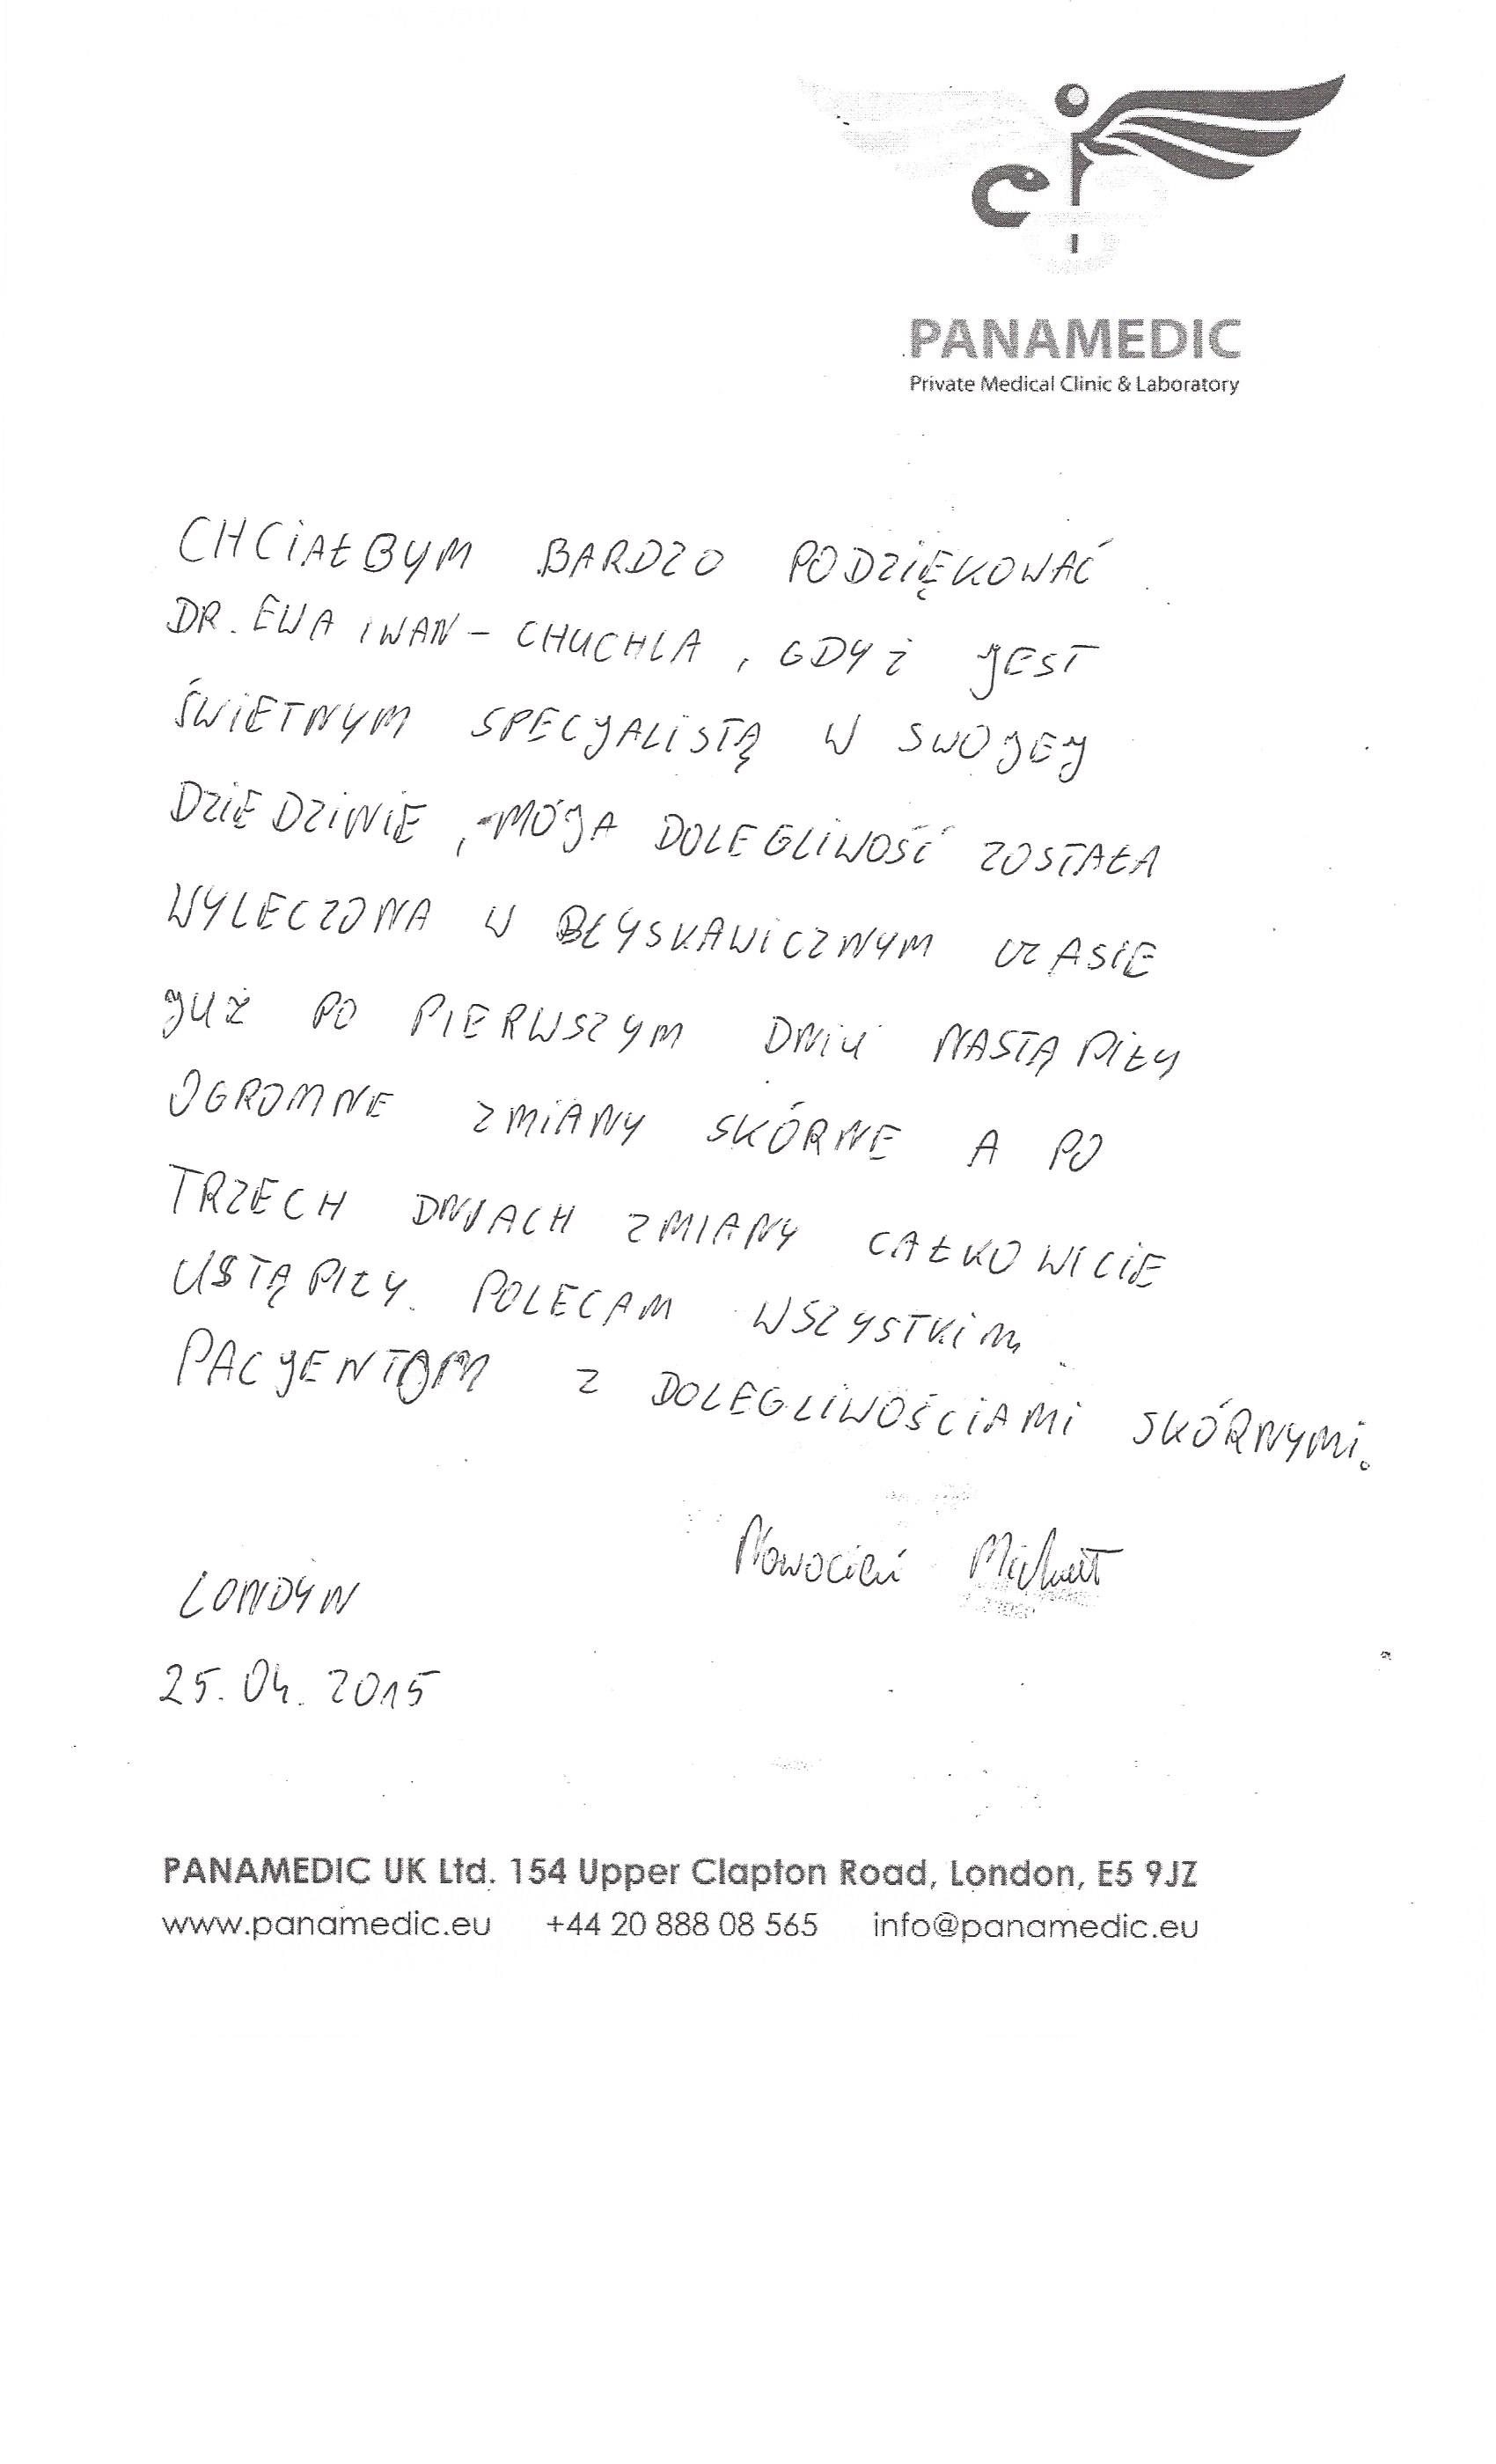 PANAMEDIC
Private Medical Clinic & Laboratory
CHCIAŁBYM BARDZO PODZIĘKOWAĆ
DR. EWA IWAN - CHUCHLA, GDYŻ JEST
ŚWIETNYM SPECJALISTĄ W SWOJEJ
DZIEDZINIE, MÓJA DOLEGLIWOŚĆ ZOSTAŁA
WYLECZONA W BŁYSKAWICZNYM CZASIE
JUŻ PO PIERWSZYM DNIU NASTĄPIŁY
OGROMNE ZMIANY SKÓRNE A PO
TRZECH DNIACH ZMIANY CAŁKOWICIE
USTĄPIŁY. POLECAM WSZYSTKIM
PACJENTOM Z DOLEGLIWOŚCIAMI SKÓRNYMI.
Nowocień Michał
LONDYN
25.04.2015
PANAMEDIC UK Ltd. 154 Upper Clapton Road, London, E5 9JZ
www.panamedic.eu +44 20 888 08 565 info@panamedic.eu